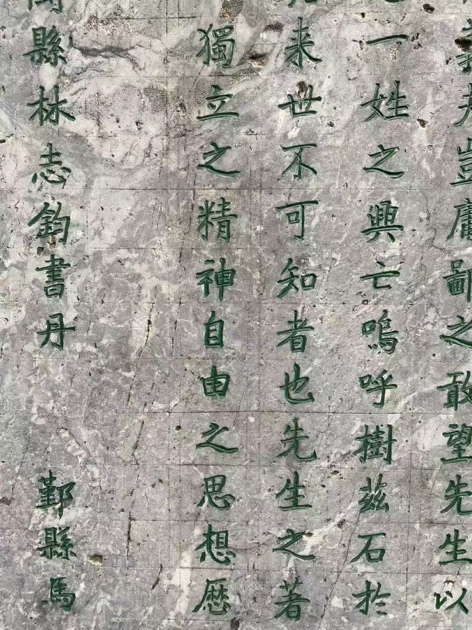 義者豈庸鄙之敢望先生以
一姓之興亡嗚呼樹茲石於
来世不可知者也先生之著
獨立之精神自由之思想歷
閩縣林志鈞書丹 鄞縣馬